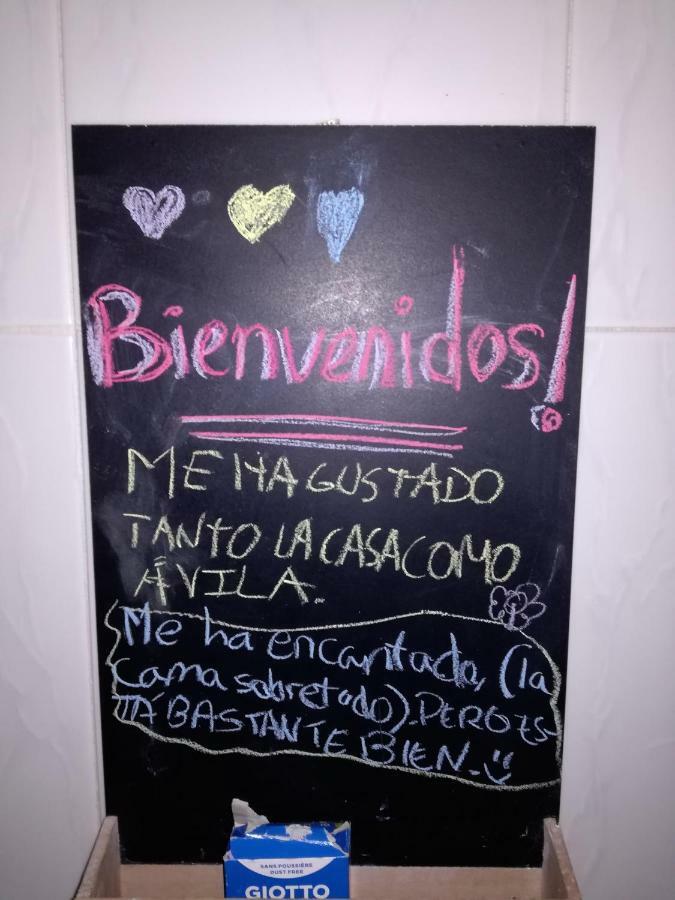 Bienvenidos!
ME HA GUSTADO
TANTO LA CASA COMO
ÁVILA.
Me ha encantado, (la
cama sobretodo). PERO ES-
TÁ BASTANTE BIEN.
SANS POUSSIÈRE
DUST FREE
GIOTTO